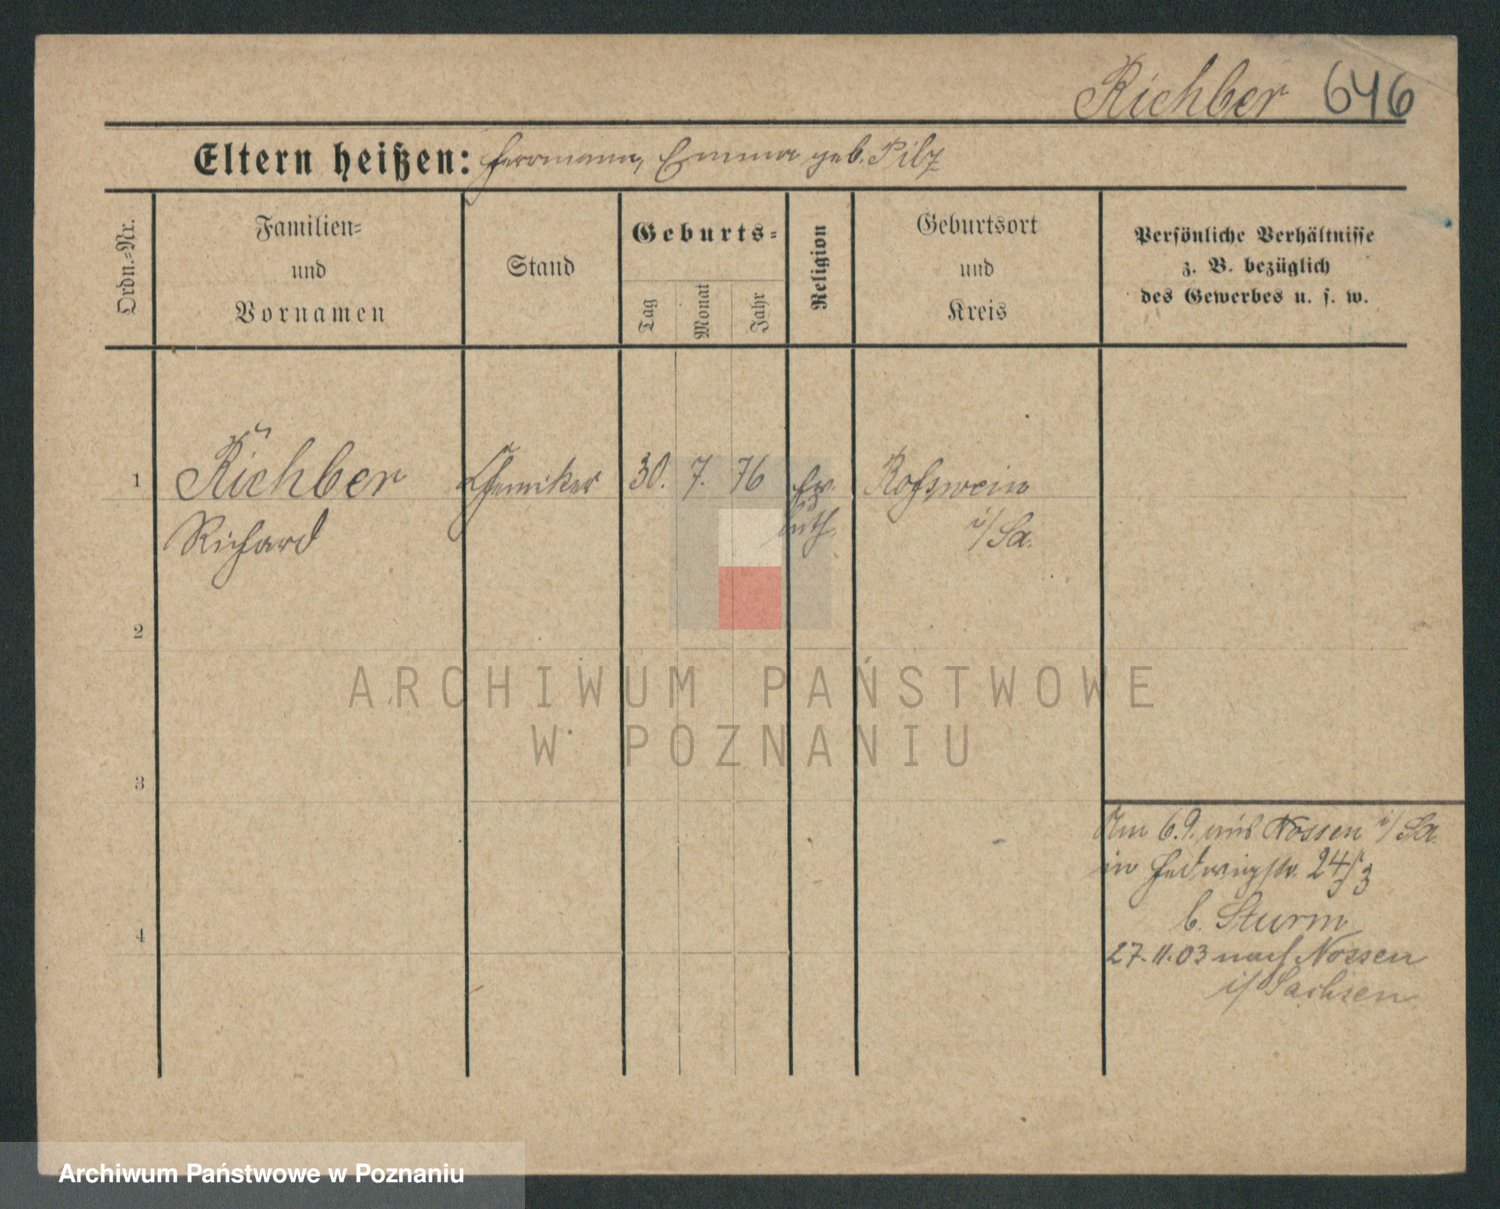 Richber 646
Eltern heißen: Herrmann, Emma geb. Pilz
Ordn.=Nr.
Familien=
und
Vornamen
Stand
Geburts=
Tag
Monat
Jahr
Religion
Geburtsort
und
Kreis
Persönliche Verhältnisse
z. B. bezüglich
des Gewerbes u. s. w.
1
Richber
Richard
Chemiker
30. 7. 76
Ev.
luth.
Roßwein
i/Sa.
2
3
4
Am 6.9. aus Nossen i/Sa.
in Hedwigstr. 24/3
b. Sturm
27.11.03 nach Nossen
i/Sachsen.
ARCHIWUM PAŃSTWOWE
W POZNANIU
Archiwum Państwowe w Poznaniu